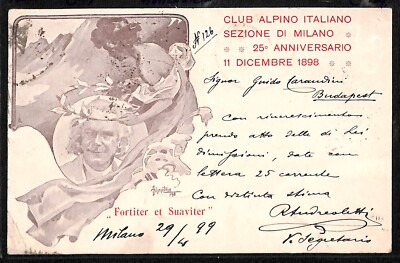 CLUB ALPINO ITALIANO
SEZIONE DI MILANO
25º ANNIVERSARIO
11 DICEMBRE 1898
N 126
Signor Guido Carandini
Budapest
Con rincrescimento
prendo atto delle di Lei
dimissioni, date con
lettera 25 corrente
Con distinta stima
"Fortiter et Suaviter"
Milano 29/4 99
V. Segretario